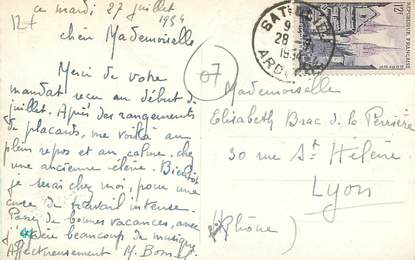 12f
ce mardi 27 juillet
1954
chère Mademoiselle
Merci de votre
mandat reçu au début de
juillet. Après des rangements
de placards, me voilà au
plein repos et au calme, chez
une ancienne élève. Bientôt
je serais chez moi, pour une
cure de travail intense.
Passez de bonnes vacances, avec
beaucoup de musique
Affectueusement M.
07
28
ARD
12f
REPUBLIQUE FRANÇAISE
Mademoiselle
Elisabeth Brac de la Perrière
30 rue Ste Hélène
Lyon
(Rhône)